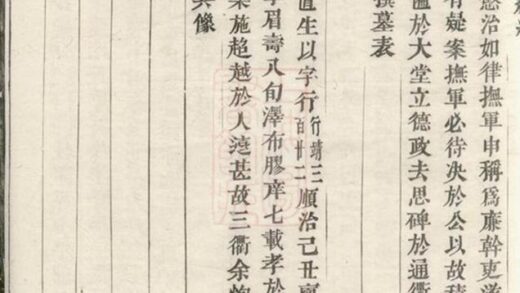 懲治如律撫軍申稱爲廉幹吏
有疑案撫軍必待决於公以故積
於大堂立德政去思碑於通衢
撰墓表
直生以字行行靖三百廿二順治己丑
眉壽八旬澤布膠庠七載孝於
施超越於人遠甚故三衢余
像